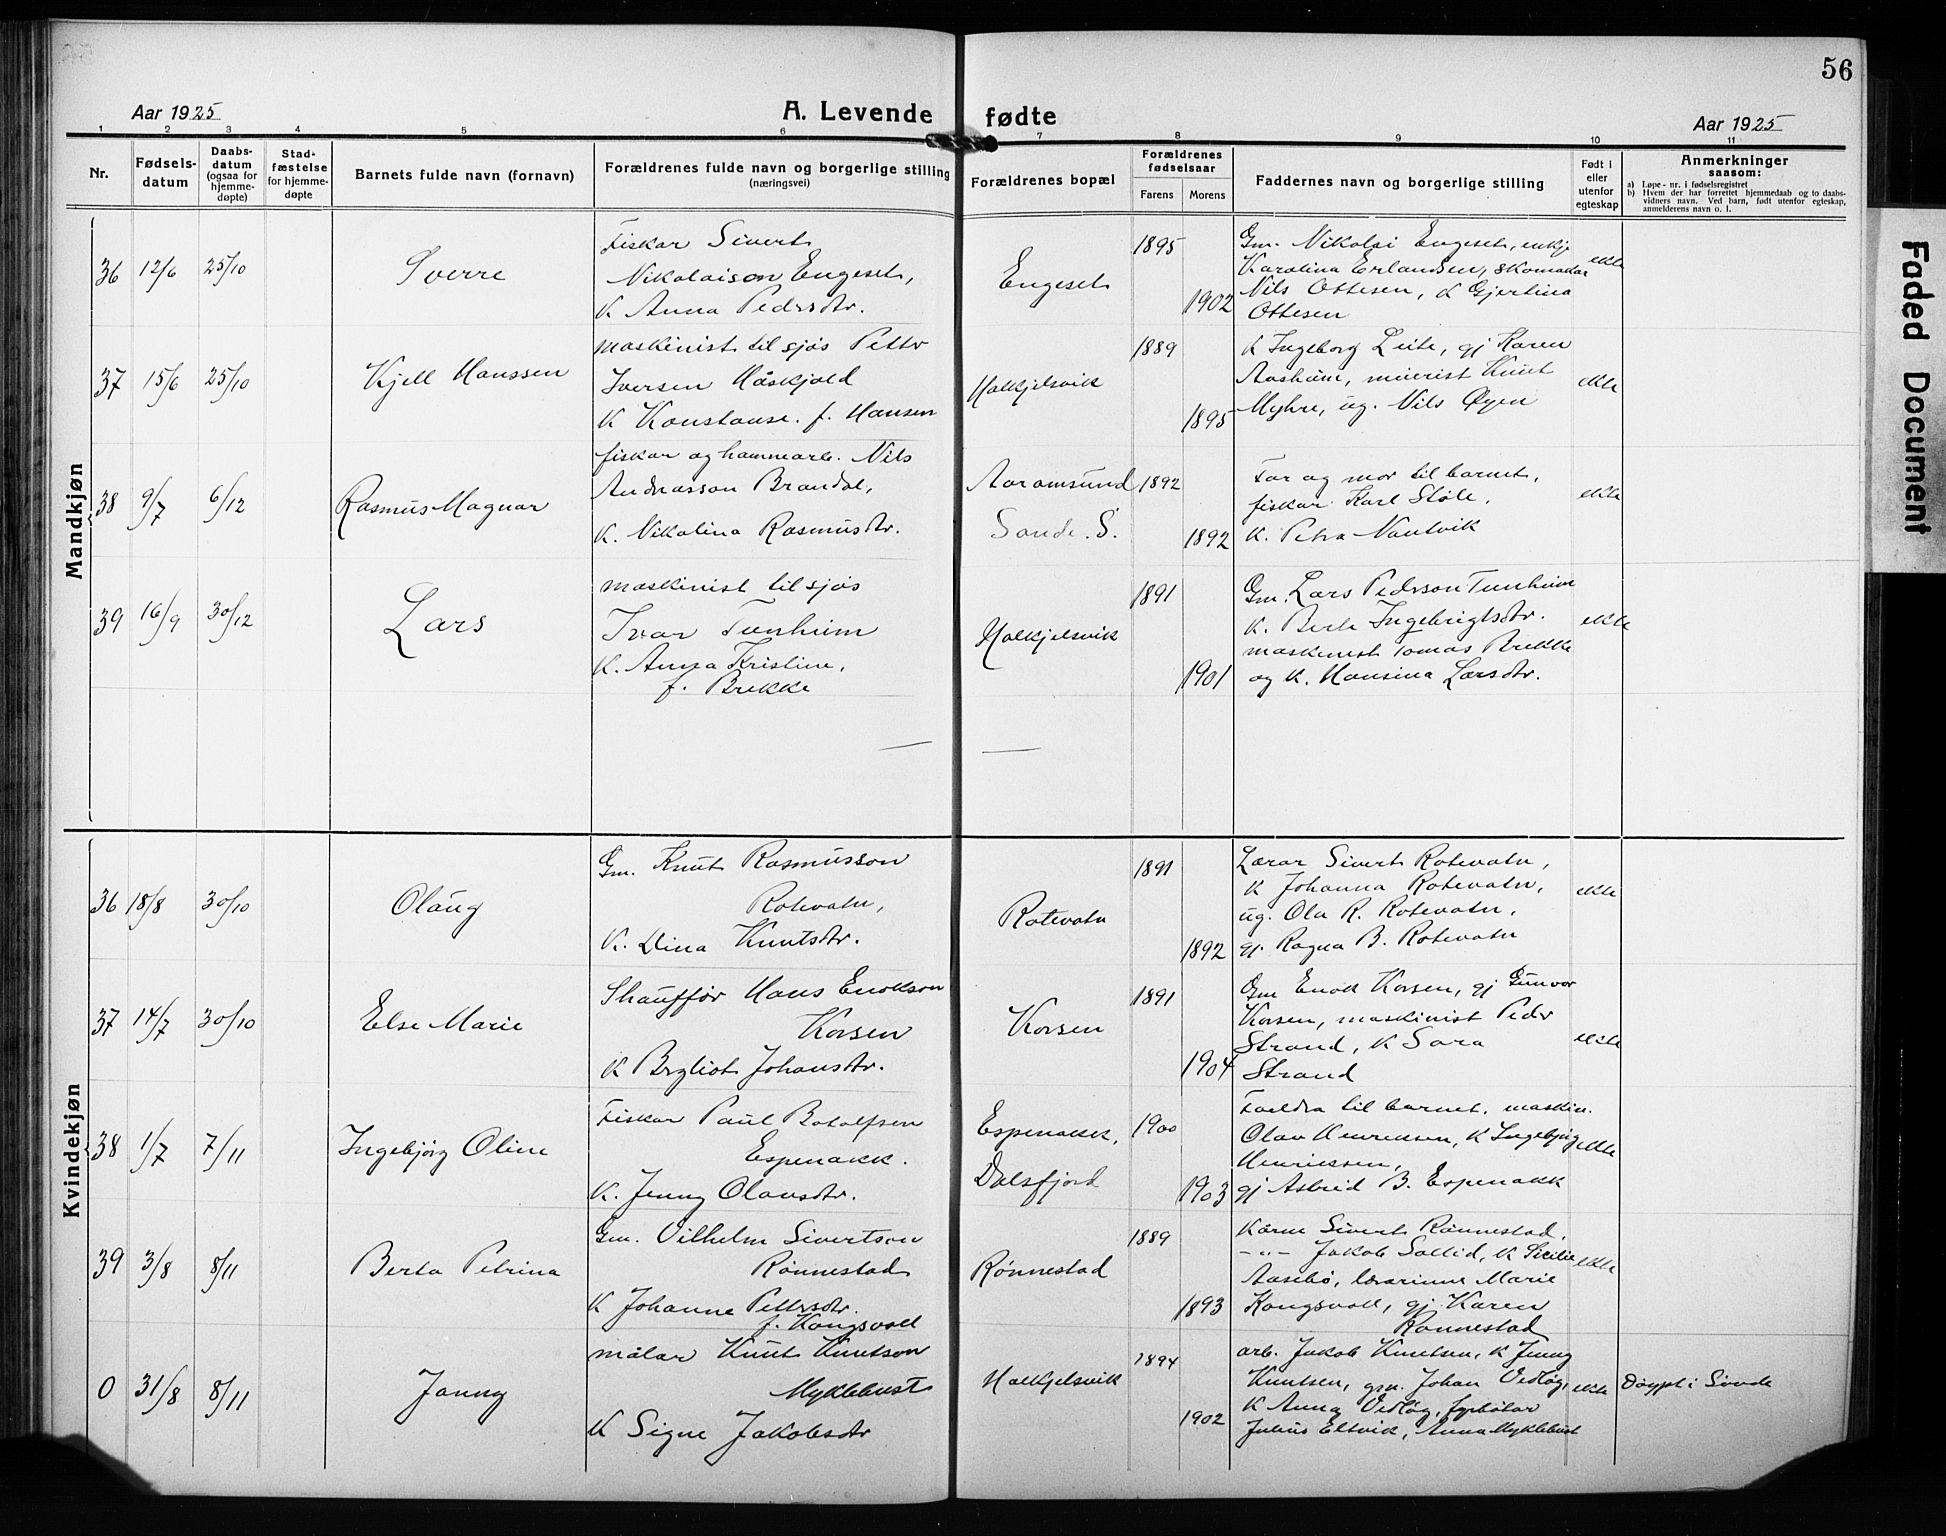 56
Aar 1925
A. Levende fødte
Aar 1925
1 2 3 4 5 6 7 8 9 10 11
Nr.
Fødsels-
datum
Daabs-
datum
(ogsaa for
hjemme-
døpte)
Stad-
fæstelse
for hjemme-
døpte
Barnets fulde navn (fornavn)
Forældrenes fulde navn og borgerlige stilling
(næringsvei)
Forældrenes bopæl
Forældrenes
fødselsaar
Farens Morens
Faddernes navn og borgerlige stilling
Født i
eller
utenfor
egteskap
Anmerkninger
saasom:
a) Løpe-nr. i fødselsregistret
b) Hvem der har forrettet hjemmedaab og to daabs-
vidners navn. Ved barn, født utenfor egteskap,
anmelderens navn o. l.
Faded Document
Mandkjøn
36 12/6 25/10
Sverre
Fiskar Sivert
Nikolaison Engeset,
K Anna Pedrsdtr.
Engeset
1895
1902
Gm. Nikolai Engeset, enkje
Karolina Erlandsen, skomakar
Nils Ottesen, K Gjertina
Ottesen
ekte
37 15/6 25/10
Kjell Hanssen
maskinist til sjøs Pettr
Iversen Håskjold
K Konstanse. f. Hansen
Halkjelsvik
1889
1895
K Ingeborg Leite, gj Karen
Aasheim, meierist Knut
Myhre, ug. Nils Øyen
ekte
38 9/7 6/12
Rasmus Magnar
fiskar og hammearb. Nils
Andreasson Brandal,
K. Nikolina Rasmusdtr.
Aaramsund
Sande. S.
1892
1892
Far og mor til barnet,
fiskar Karl Støle,
K. Petra Nautvik
ekte
39 16/9 30/12
Lars
maskinist til sjøs
Ivar Tunheim
K. Anna Kristine,
f. Brekke
Halkjelsvik
1891
1901
Gm. Lars Pedrson Tunheim
K. Berte Ingebrigtsdtr.
maskinist Tomas Brekke
og K. Hansina Larsdtr.
ekte
Kvindekjøn
36 18/8 30/10
Olaug
Gm. Knut Rasmusson
Rotevatn,
K. Dina Knutsdtr.
Rotevatn
1891
1892
Lærar Sivert Rotevatn,
K Johanna Rotevatn,
ug. Ola R. Rotevatn,
gj. Ragna B. Rotevatn
ekte
37 14/7 30/10
Else Marie
Shauffør Hans Enokson
Korsen
K Bergliot Johansdtr.
Korsen
1891
1904
Gm Enok Korsen, gj Gunvor
Korsen, maskinist Pedr
Strand, K Sara
Strand
ekte
38 1/7 7/11
Ingebjørg Oline
Fiskar Paul Botolfsen
Espenakk.
K. Jenny Olausdtr.
Espenakk,
Dalsfjord
1900
1903
Foreldra til barnet. maskin.
Olav Henriksen, K Ingebjørg
Henriksen,
gj Astrid B. Espenakk
ekte
39 3/8 8/11
Berta Petrina
Gm. Vilhelm Sivertson
Rønnestad
K Johanne Pettrsdtr.
f. Kongsvoll
Rønnestad
1889
1893
Kårm Sivert Rønnestad.
-"- Jakob Sollid, K Sicilie
Aasebø, lærarinne Marie
Kongsvoll, gj. Karen
Rønnestad
ekte
0 31/8 8/11
Janny
målar Knut Knutson
Myklebust
K Signe Jakobsdtr
Halkjelsvik
1894
1902
arb. Jakob Knutsen, K Jenny
Knutsen, gm. Johan Vedløg,
K Anna Vedløg, fyrbøtar
Julius Eltvik, Anna Myklebust
ekte
Døypt i Sande